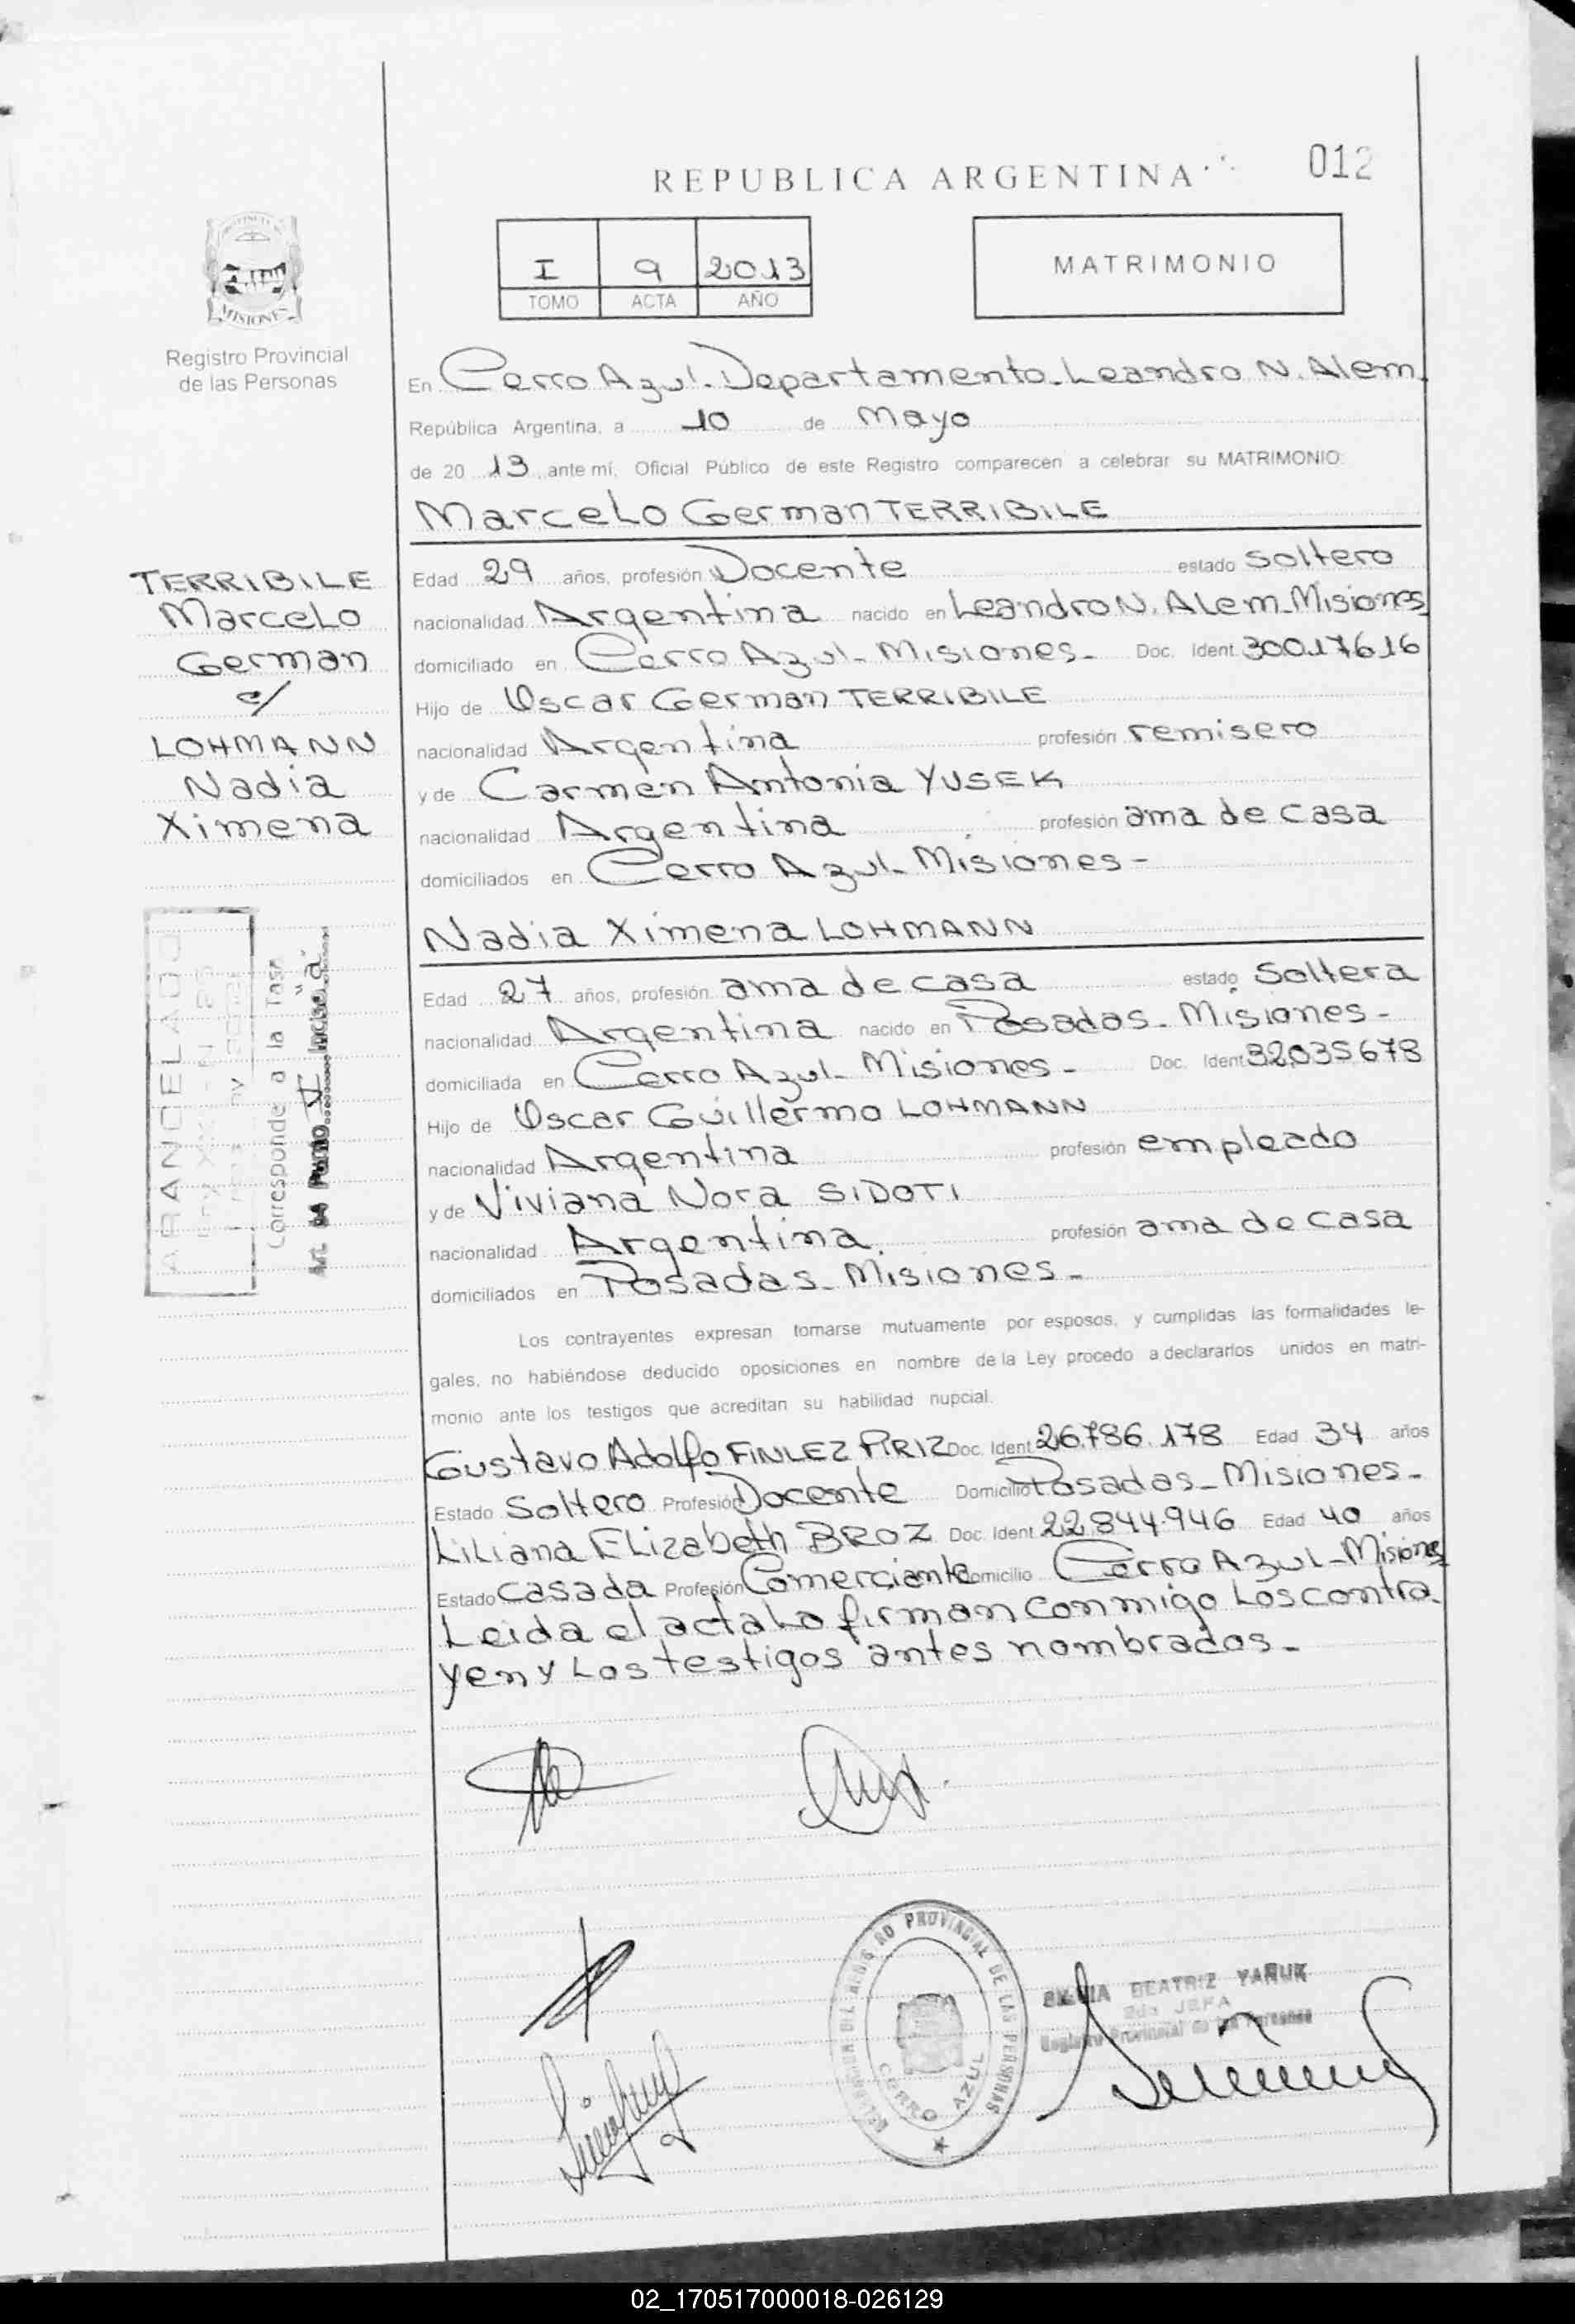 REPUBLICA ARGENTINA
012
PROVINCIA DE
MISIONES
Registro Provincial
de las Personas
I 9 2013
TOMO ACTA AÑO
MATRIMONIO
En Cerro Azul. Departamento Leandro N. Alem.
República Argentina, a 10 de Mayo
de 20 13 ante mí, Oficial Público de este Registro comparecen a celebrar su MATRIMONIO:
Marcelo German TERRIBILE
Edad 29 años, profesión Docente estado soltero
nacionalidad Argentina nacido en Leandro N. Alem-Misiones
domiciliado en Cerro Azul-Misiones- Doc. Ident. 30017616
Hijo de Oscar German TERRIBILE
nacionalidad Argentina profesión remisero
y de Carmen Antonia YUSEK
nacionalidad Argentina profesión ama de casa
domiciliados en Cerro Azul-Misiones-
Nadia Ximena LOHMANN
Edad 27 años, profesión ama de casa estado Soltera
nacionalidad Argentina nacido en Posadas-Misiones-
domiciliada en Cerro Azul-Misiones- Doc. Ident 32.035678
Hijo de Oscar Guillermo LOHMANN
nacionalidad Argentina profesión empleado
y de Viviana Nora SIDOTI
nacionalidad Argentina. profesión ama de casa
domiciliados en Posadas-Misiones-
Los contrayentes expresan tomarse mutuamente por esposos, y cumplidas las formalidades le-
gales, no habiéndose deducido oposiciones en nombre de la Ley procedo a declararlos unidos en matri-
monio ante los testigos que acreditan su habilidad nupcial.
Gustavo Adolfo FINLEZ PIRIZ Doc. Ident 26.786.178 Edad 34 años
Estado Soltero Profesión Docente Domicilio Posadas-Misiones-
Liliana Elizabeth BROZ Doc. Ident 22.844.946 Edad 40 años
Estado Casada Profesión Comerciante Domicilio Cerro Azul-Misiones
Leida el acta la firman conmigo los contra
yen y los testigos antes nombrados-
TERRIBILE
Marcelo
German
c/
LOHMANN
Nadia
Ximena
ARANCELADO
Corresponde a la Tasa
Art. Punto VI Inciso "a"
REGISTRO PROVINCIAL DE LAS PERSONAS
CERRO AZUL
BEATRIZ YARUK
JEFA
Registro Provincial de las Personas
02_170517000018-026129